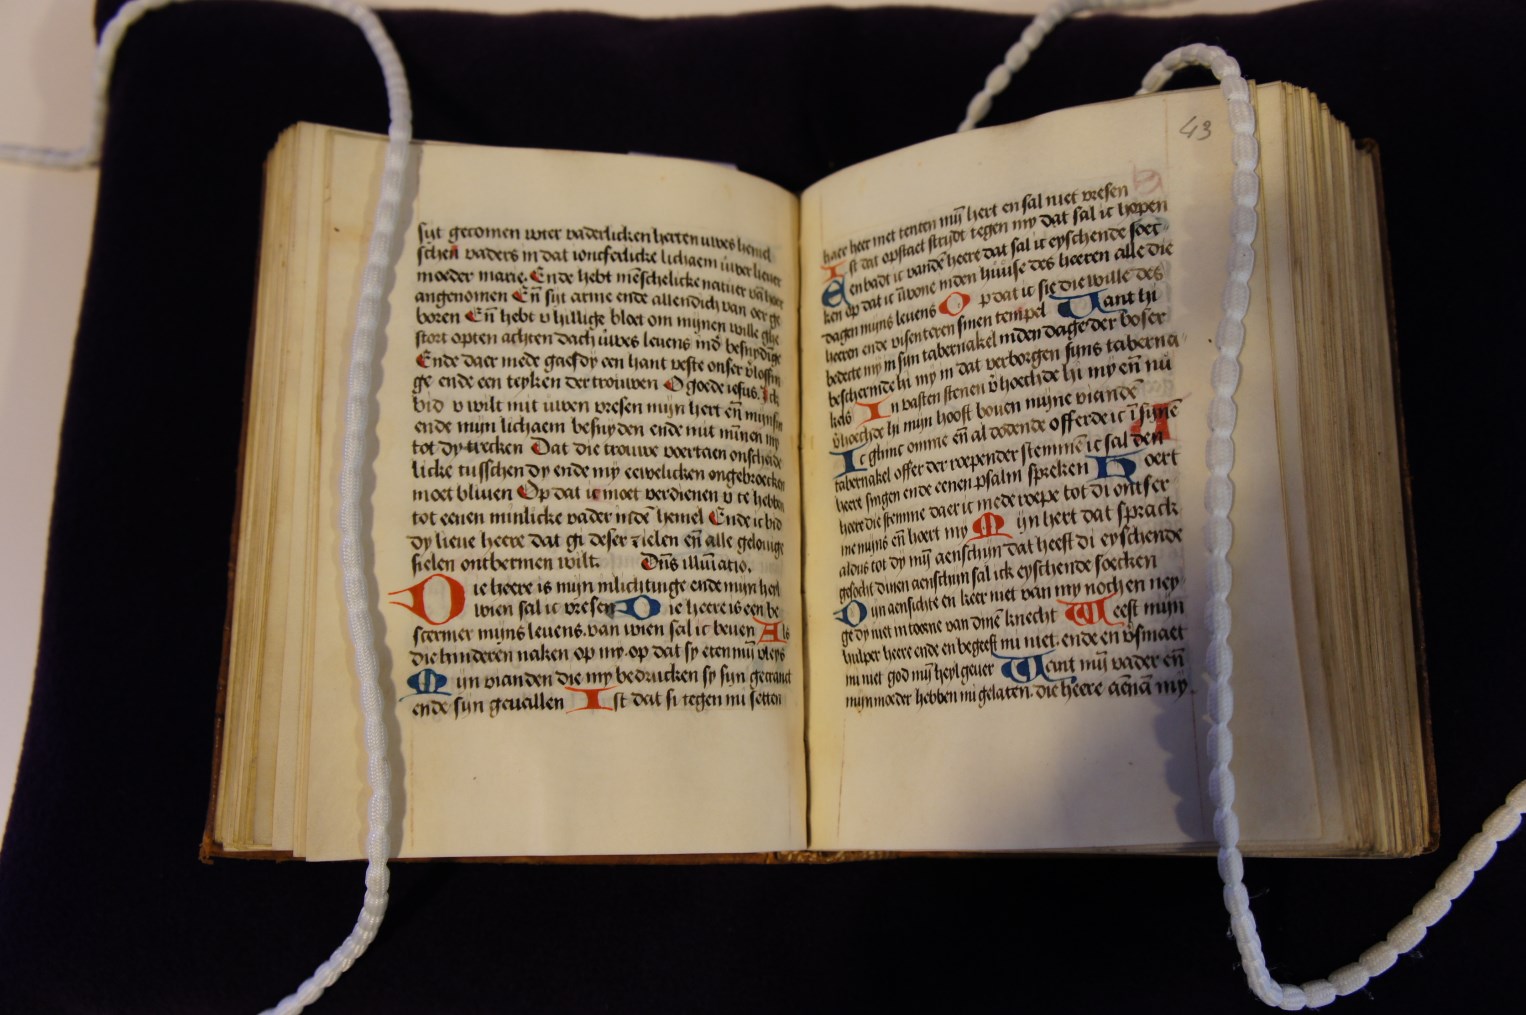 sijt gecomen wter vaderlicken herten uwes hemel
schen vaders in dat ioncferlicke lichaem uwer liever
moeder marie. Ende hebt mēschelicke natuer
angenomen Eñ sijt arme ende allendich van ge
boren Eñ hebt v hillige bloet om mijnen wille ghe
stort opten achten dach uwes levens
Ende daer mede gaefdy een hant veste onser
ge ende een teyken der trouwen O goede iesus. Ick
bid v wilt mit uwen vresen mijn hert eñ mijnen
ende mijn lichaem besnyden ende mit minnen my
tot dy trecken Dat die trouwe voertaen onscheide
licke tusschen dy ende my eewelicken ongebroecken
moet bliven Op dat ic moet verdienen v te hebben
tot eenen minlicke vader inde hemel Ende ic bid
dy lieve heere dat gi deser zielen eñ alle gelovige
sielen ontbermen wilt. Dñs illuīatio.
Die heere is mijn inlichtinge ende mijn heil
wien sal ic vresen Die heere is een be
scermer mijns levens. van wien sal ic beven Als
die hinderen naken op my. op dat sy eten mij vleys
Mijn vianden die my bedrucken sy sijn gecranct
ende sijn gevallen Ist dat si tegen mi setten
43
haer heer met tenten mij hert en sal niet vresen
Ist dat opstaet strijdt tegen my dat sal ic hopen
Een badt ic vande heere dat sal ic eyschende soec
ken op dat ic wone inden huuse des heeren alle die
dagen mijns levens Op dat ic sie die wille des
heeren ende visenteren sinen tempel Want hi
bedecte my in sijn tabernakel inden dage der boser
beschermde hi my in dat verborgen sijns taberna
kels In vasten stenen v̄hoechde hi my eñ nu
v̄hoechde hi mijn hooft boven mijne viande
Ic ghinc omme eñ al dodende offerde ic ī sijnē
tabernakel offer der roepender stemmē ic sal den
heere singen ende eenen psalm spreken Hoert
heere die stemme daer ic mede roepe tot di ontfer
me mijns eñ hoert my Mijn hert dat sprack
aldus tot dy mij aenschijn dat heeft di eyschende
gesocht dinen aenschijn sal ick eyschende soecken
Dijn aensichte en keer niet van my noch en ney
ge dy niet in toerne van dinē knecht Weest mijn
hulper heere ende en begeeft mi niet. ende en v̄smaet
mi niet god mij heyl gever Want mij vader eñ
mijn moeder hebben mi gelaten. die heere aēnā my.